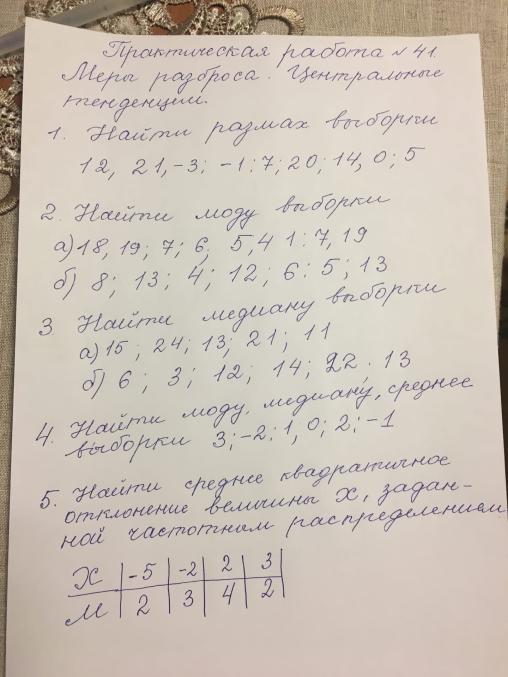 Практическая работа №41.
Меры разброса. Центральные
тенденции.
1. Найти размах выборки
12, 21, -3; -1; 7; 20; 14, 0; 5
2. Найти моду выборки
а) 18, 19; 7; 6; 5, 4 1; 7, 19
б) 8; 13; 4; 12; 6; 5; 13
3. Найти медиану выборки
а) 15; 24; 13; 21; 11
б) 6; 3; 12; 14; 22. 13
4. Найти моду, медиану, среднее
выборки 3; -2; 1, 0; 2; -1
5. Найти среднее квадратичное
отклонение величины X, задан-
ной частотным распределением
X | -5 | -2 | 2 | 3
М | 2 | 3 | 4 | 2